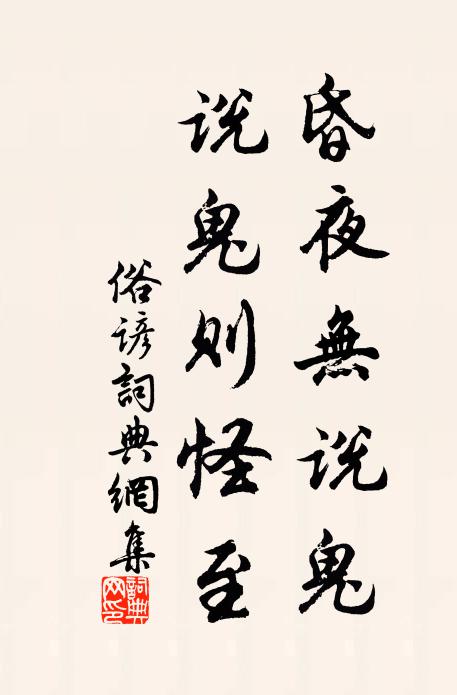 昏夜無说鬼
说鬼则怪至
俗諺詞典網集
詞典网印